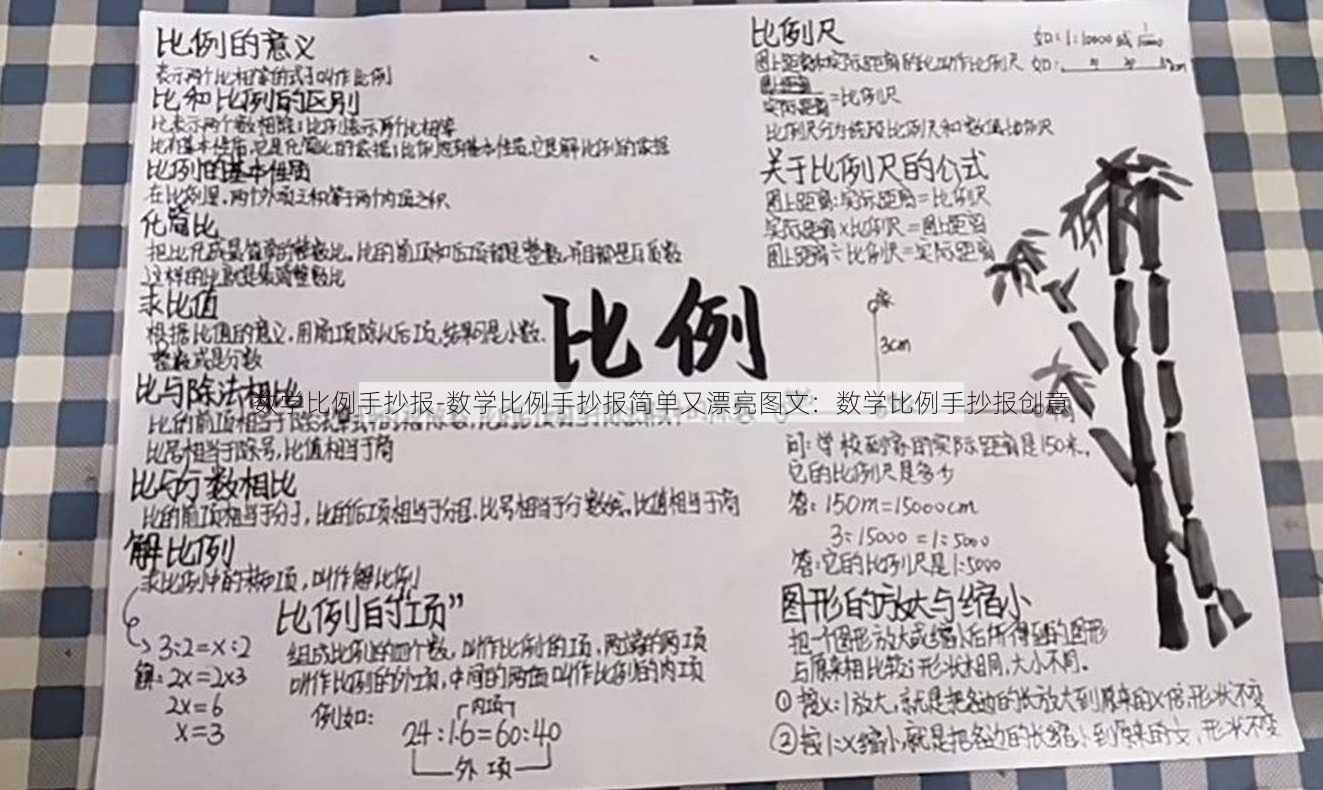 比例的意义
表示两个比相等的式子叫作比例
比和比例的区别
比表示两个数相除；比例表示两个比相等
比有基本性质，它是化简比的依据；比例也有基本性质，它是解比例的依据
比例的基本性质
在比例里，两个外项之积等于两个内项之积
化简比
把比化成最简单的整数比。比的前项和后项都是整数，并且都是互质数
这样的比就是最简整数比
求比值
根据比值的意义，用前项除以后项，结果可是小数、
整数或是分数
比与除法相比
比的前项相当于
比号相当于除号，比值相当于商
比与分数相比
比的前项相当于分子，比的后项相当于分母，比号相当于分数线，比值相当于商
解比例
求比例中的未知项，叫作解比例
3:2=x:2
解：2x=2×3
2x=6
x=3
比例的"项"
组成比例的四个数，叫作比例的项，两端的两项
叫作比例的外项，中间的两项叫作比例的内项
例如：
内项
24:1.6=60:40
外项
比例
数学比例手抄报-数学比例手抄报简单又漂亮图文：数学比例手抄报创意
比例尺
如：1:10000或
图上距离和实际距离的比叫作比例尺
如：
图上距离
实际距离
=比例尺
比例尺分为线段比例尺和数值比例尺
关于比例尺的公式
图上距离:实际距离=比例尺
实际距离×比例尺=图上距离
图上距离÷比例尺=实际距离
家
3cm
问：学校到家的实际距离是150米，
它的比例尺是多少
答：150m=15000cm
3:15000=1:5000
答：它的比例尺是1:5000
图形的放大与缩小
把一个图形放大或缩小后所得到的图形
与原来相比较：形状相同，大小不同。
①按x:1放大，就是把各边的长放大到原来的x倍，形状不变
②按1:x缩小，就是把各边的长缩小到原来的，形状不变